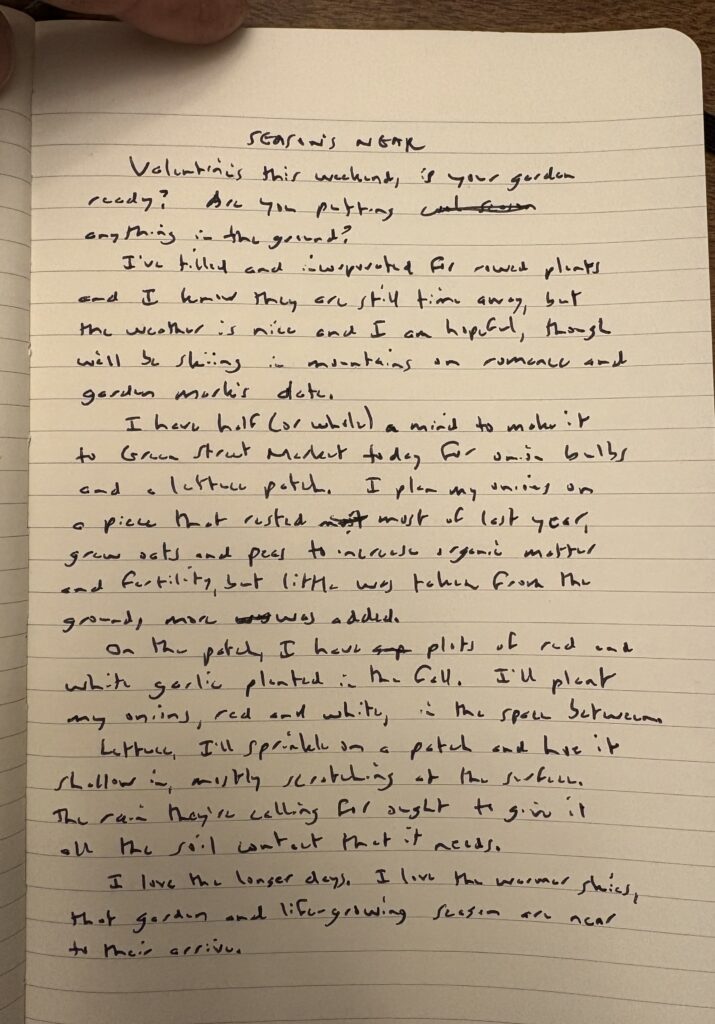 SEASONS NEAR
Valentine's this weekend, is your garden
ready? Are you putting
anything in the ground?
I've tilled and incorporated for rowed plants
and I know they are still time away, but
the weather is nice and I am hopeful, though
will be skiing in mountains on romance and
garden mark's date.
I have half (or whole) a mind to make it
to Green Street Market today for onion bulbs
and a lettuce patch. I plan my onions on
a piece that rested most of last year,
grew oats and peas to increase organic matter
and fertility, but little was taken from the
ground, more was added.
On the patch, I have plots of red and
white garlic planted in the fall. I'll plant
my onions, red and white, in the space between.
Lettuce, I'll sprinkle on a patch and hoe it
shallow in, mostly scratching at the surface.
The rain they're calling for ought to give it
all the soil contact that it needs.
I love the longer days. I love the warmer skies,
that garden and life-growing season are near
to their arrive.